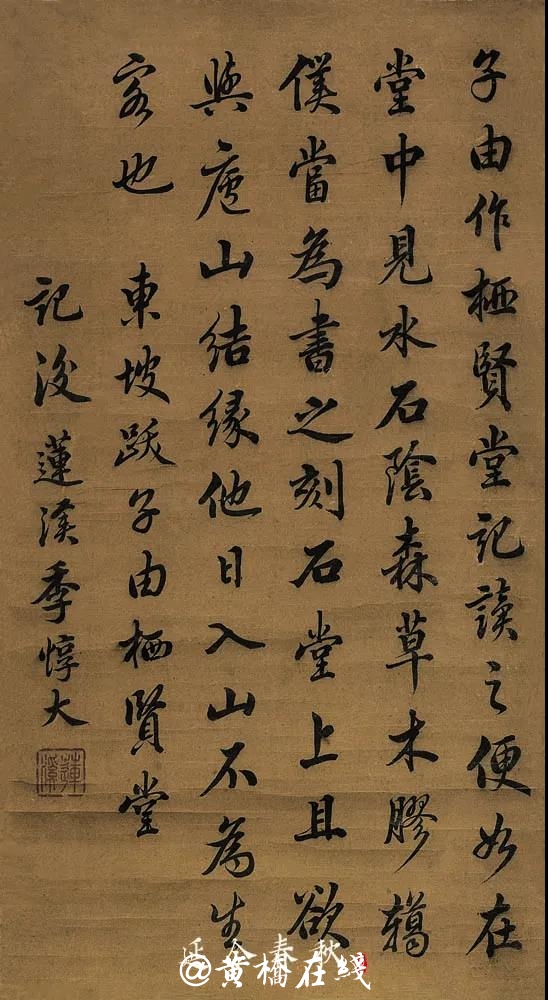 子由作栖賢堂記讀之便如在
堂中見水石陰森草木膠轕
僕當為書之刻石堂上且欲
與廬山結緣他日入山不為生
客也
東坡跋子由栖賢堂
記後 蓮溪季惇大
蓮溪
春秋
@黄橋在线